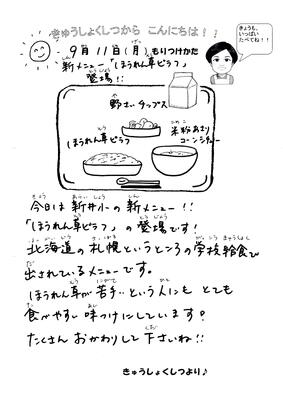 きゅうしょくしつから こんにちは！！
きょうも、
いっぱい
たべてね！！
9月11日(月) もりつけかた
新メニュー「ほうれん草ピラフ」
登場！！
野さいチップス
ほうれん草ピラフ
米粉入り
コーンシチュー
今日は新井小の新メニュー！！
「ほうれん草ピラフ」の登場です！
北海道の札幌というところの学校給食で
出されているメニューです。
ほうれん草が苦手という人にも とても
食べやすい味つけにしています！
たくさん おかわりして下さいね！！
きゅうしょくしつより♪